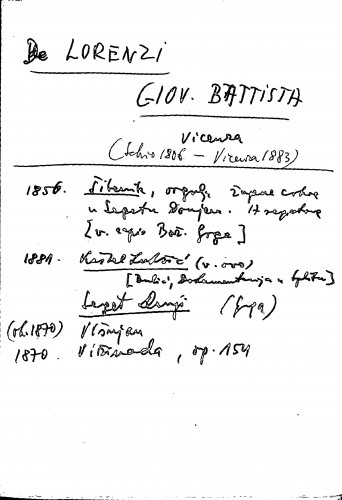 De LORENZI
GIOV. BATTISTA
Vicenza
(Schio 1806 – Vicenza 1883)
1856. Šibenik, orgulje župne crkve
u Segetu Donjem. 17 registara
[v. Božo Grga]
1881. Kaštel Lukšić (v. ovo)
[Dulčić, Dokumentacija u Splitu]
Seget Donji (Grga)
(ok. 1870) Višnjan
1870. Vižinada, op. 154